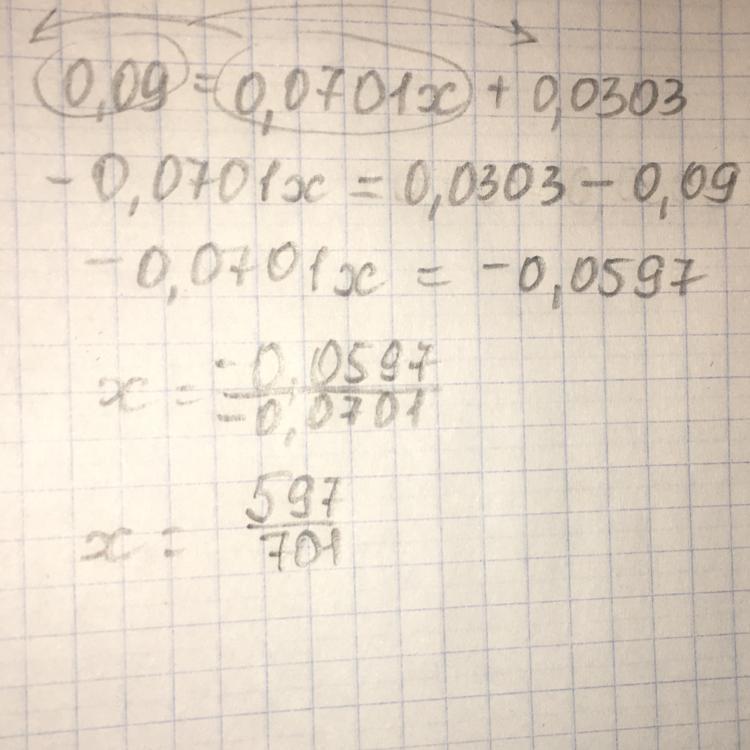 0,09 = 0,0701x + 0,0303
-0,0701x = 0,0303 - 0,09
-0,0701x = -0,0597
x = -0,0597 / -0,0701
x = 597 / 701